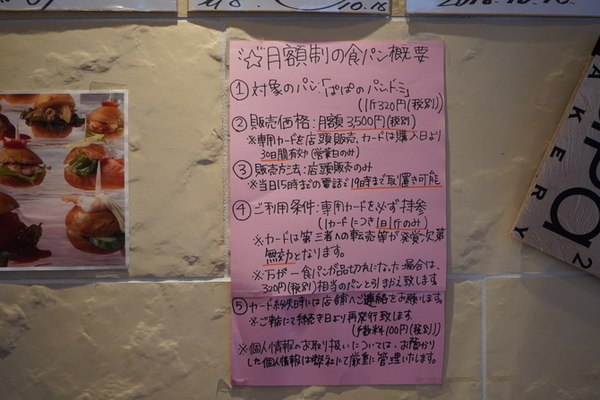 ☆月額制の食パン概要
①対象のパン:「ぱぱのパンドミ」
(1斤320円(税別))
②販売価格:月額3,500円(税別)
※専用カードを店頭販売、カードは購入日より
30日間有効(営業日のみ)
③販売方法:店頭販売のみ
※当日15時までの電話で19時まで取置き可能
④ご利用条件:専用カードを必ず持参
(1カードにつき1日1斤のみ)
※カードは第三者への転売等が発覚次第
無効となります。
※万が一食パンが品切れになった場合は、
320円(税別)相当のパンと引きかえ致します
⑤カード紛失時には店舗へご連絡をお願します。
※ご来店にて手続き日より再発行致します
(手数料100円(税別))
※個人情報のお取り扱いについては、お預かり
した個人情報は弊社にて厳重に管理いたします。
10.16
2016.10.16
pa
BAKERY
2